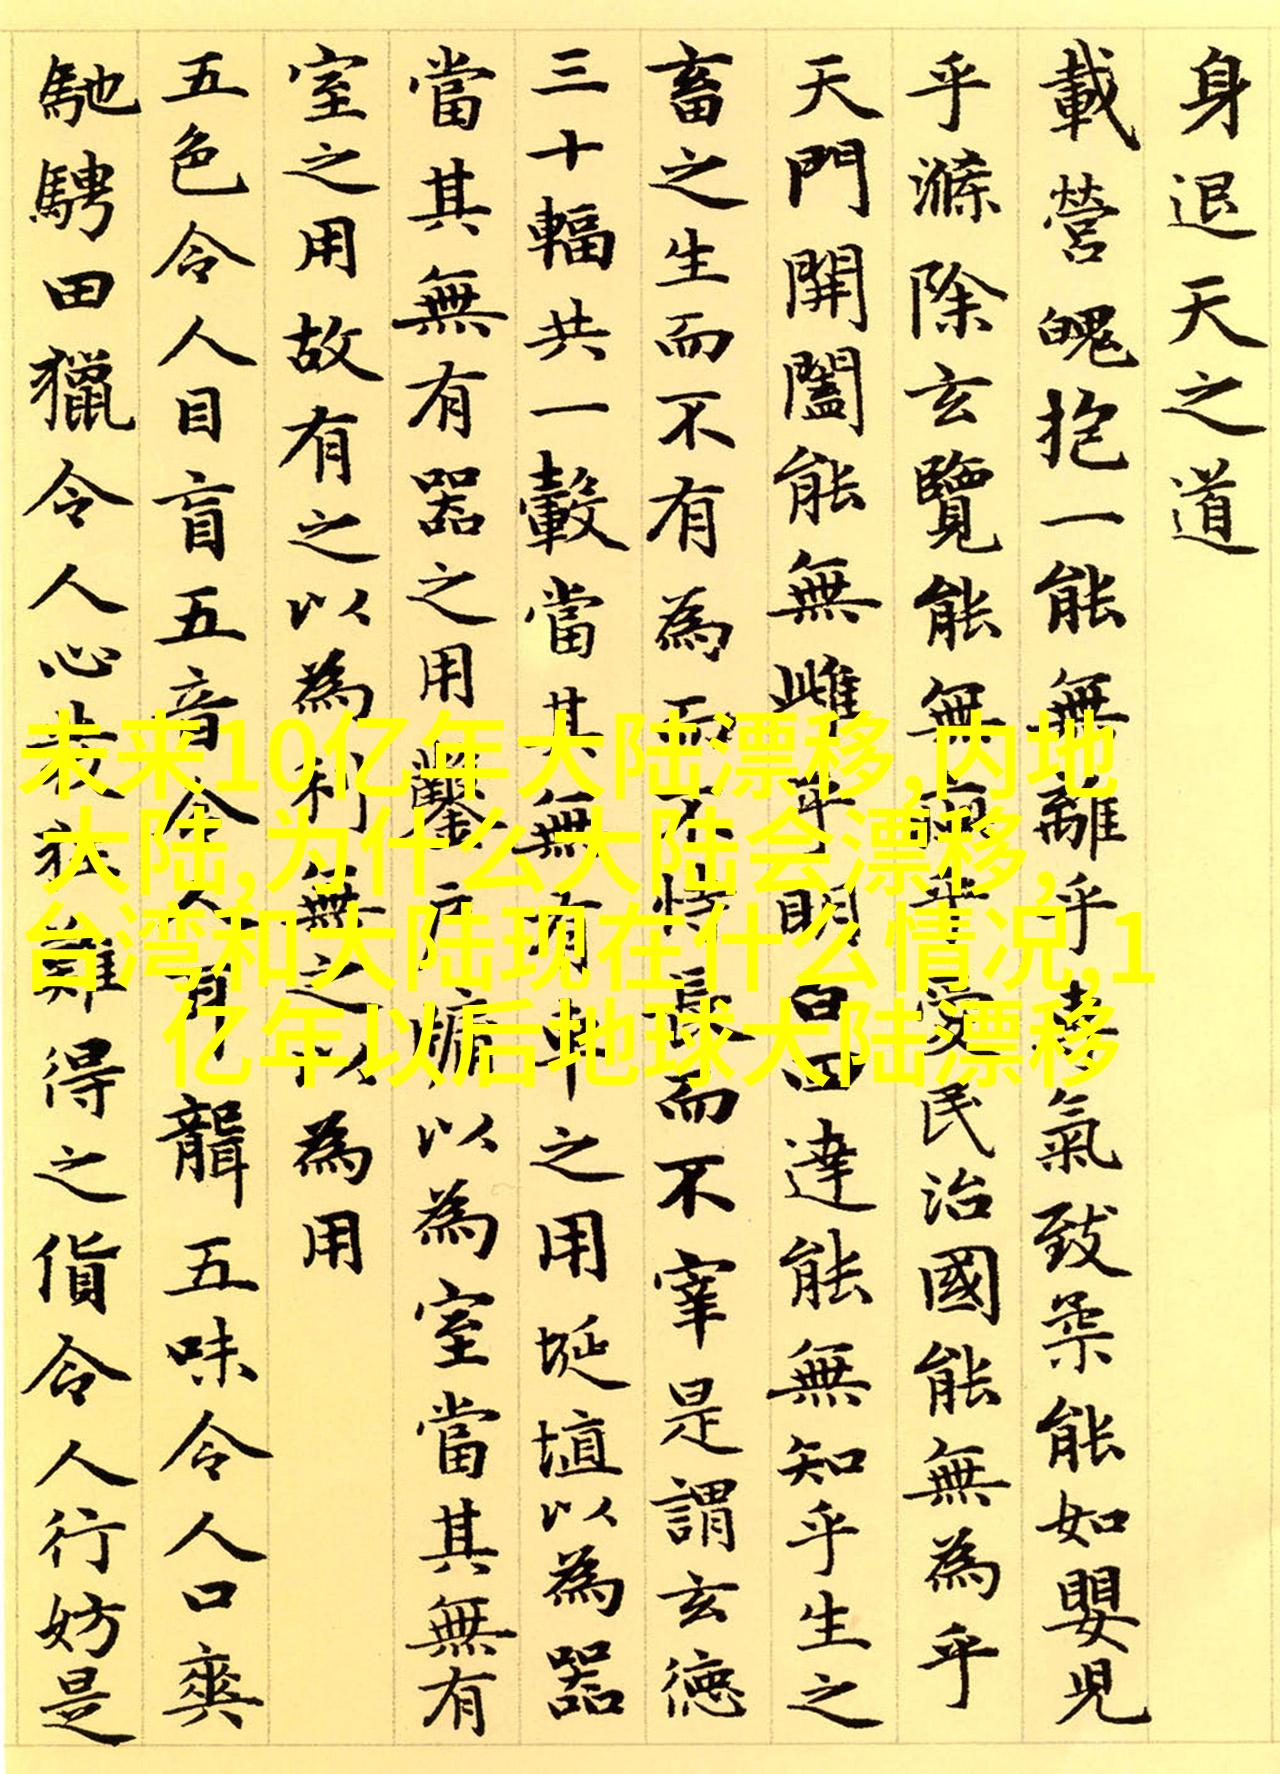 身退天之道
載營魄抱一能無離乎專氣致柔能如嬰兒
乎滌除玄覽能無疵乎愛民治國能無為乎
天門開闔能無雌乎明白四達能無知乎生之
畜之生而不有為而不恃長而不宰是謂玄德
三十輻共一轂當其無有車之用埏埴以為器
當其無有器之用鑿戶牖以為室當其無有
室之用故有之以為利無之以為用
五色令人目盲五音令人耳聾五味令人口爽
馳騁田獵令人心發狂難得之貨令人行妨是
未来10亿年大陆漂移,内地
大陆,为什么大陆会漂移,
台湾和大陆现在什么情况,1
亿年以后地球大陆漂移